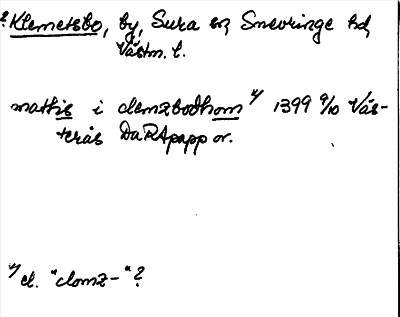 ? Klemetsbo, by, Sura sn, Snevringe hd,
Västm. l.
mathis i clemzbodhom x/ 1399 9/10 Väs-
terås DaRApapp or.
x/ el. "clomz-"?